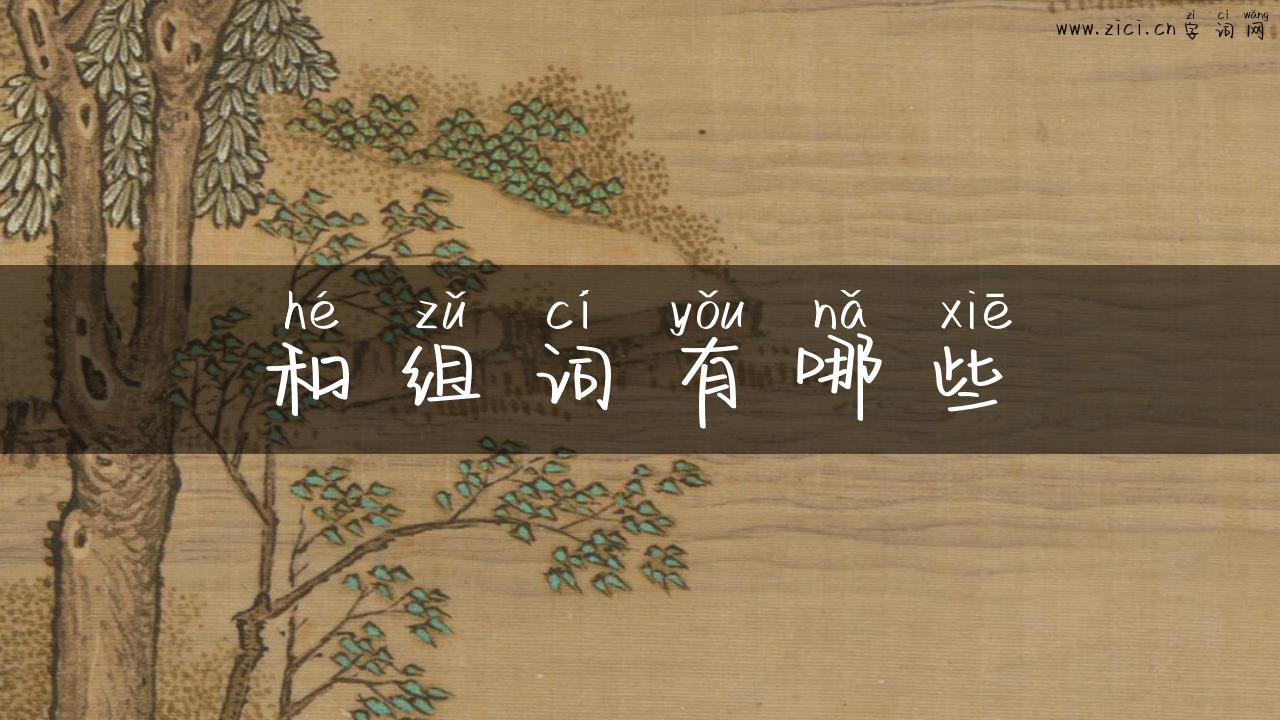 zì cí wǎng
www.zici.cn 字词网
hé zǔ cí yǒu nǎ xiē
和组词有哪些